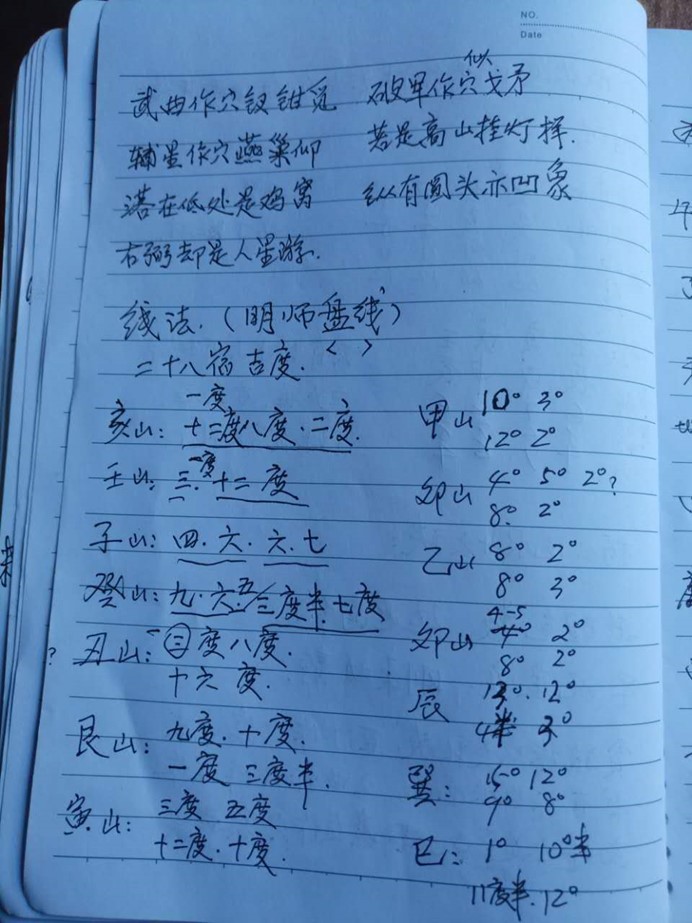 NO.
Date
武曲作穴钗钳觅 破军作穴似戈矛
辅星作穴燕巢仰 若是高山挂灯样.
落在低处是鸡窝 纵有圆头亦凹象
右弼却是人星游.
线法.(明师盘线)
< >
二十八宿吉度.
一度
亥山: 十二度八度·二度.
壬山: 三·一度十二度
子山: 四·六·六·七
癸山: 九·六·五/三度半七度
丑山: 三度八度.
十六度.
艮山: 九度·十度.
一度 三度半.
寅山: 三度 五度
十二度·十度.
甲山 10° 3°
12° 2°
卯山 4° 5° 2°?
8° 2°
乙山 8° 2°
8° 3°
卯山 4-5
4° 2°
8° 2°
辰 13°. 12°
4半 3°
巽: 15° 12°
9° 8°
巳: 1° 10°半
11度半. 12°
?